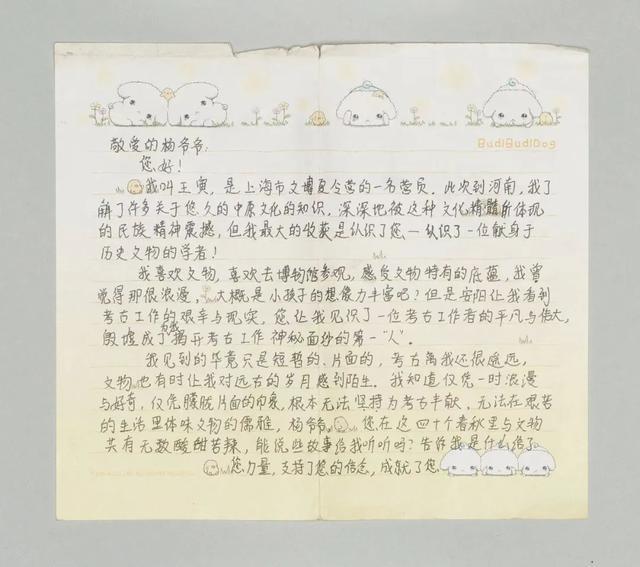 BudiBudiDog
敬爱的杨爷爷:
您好!
我叫王寅,是上海市文博夏令营的一名营员。此次到河南,我了
解了许多关于悠久的中原文化的知识,深深地被这种文化精髓所体现
的民族精神震撼,但我最大的收获是认识了您——认识了一位献身于
历史文物的学者!
我喜欢文物,喜欢去博物馆参观,感受文物特有的底蕴,我曾
觉得那很浪漫,大概是小孩子的想像力丰富吧?但是安阳让我看到
考古工作的艰辛与现实,您让我见识了一位考古工作者的平凡与伟大,
殷墟成了为我揭开考古工作神秘面纱的第一“人”。
我见到的毕竟只是短暂的、片面的,考古离我还很遥远,
文物也有时让我对远古的岁月感到陌生。我知道仅凭一时浪漫
与好奇,仅凭朦胧片面的印象,根本无法坚持为考古奉献,无法在艰苦
的生活里体味文物的儒雅,杨爷爷,您在这四十个春秋里与文物
共有无数酸甜苦辣,能说些故事给我听听吗?告诉我是什么给了
您力量,支持了您的信念,成就了您